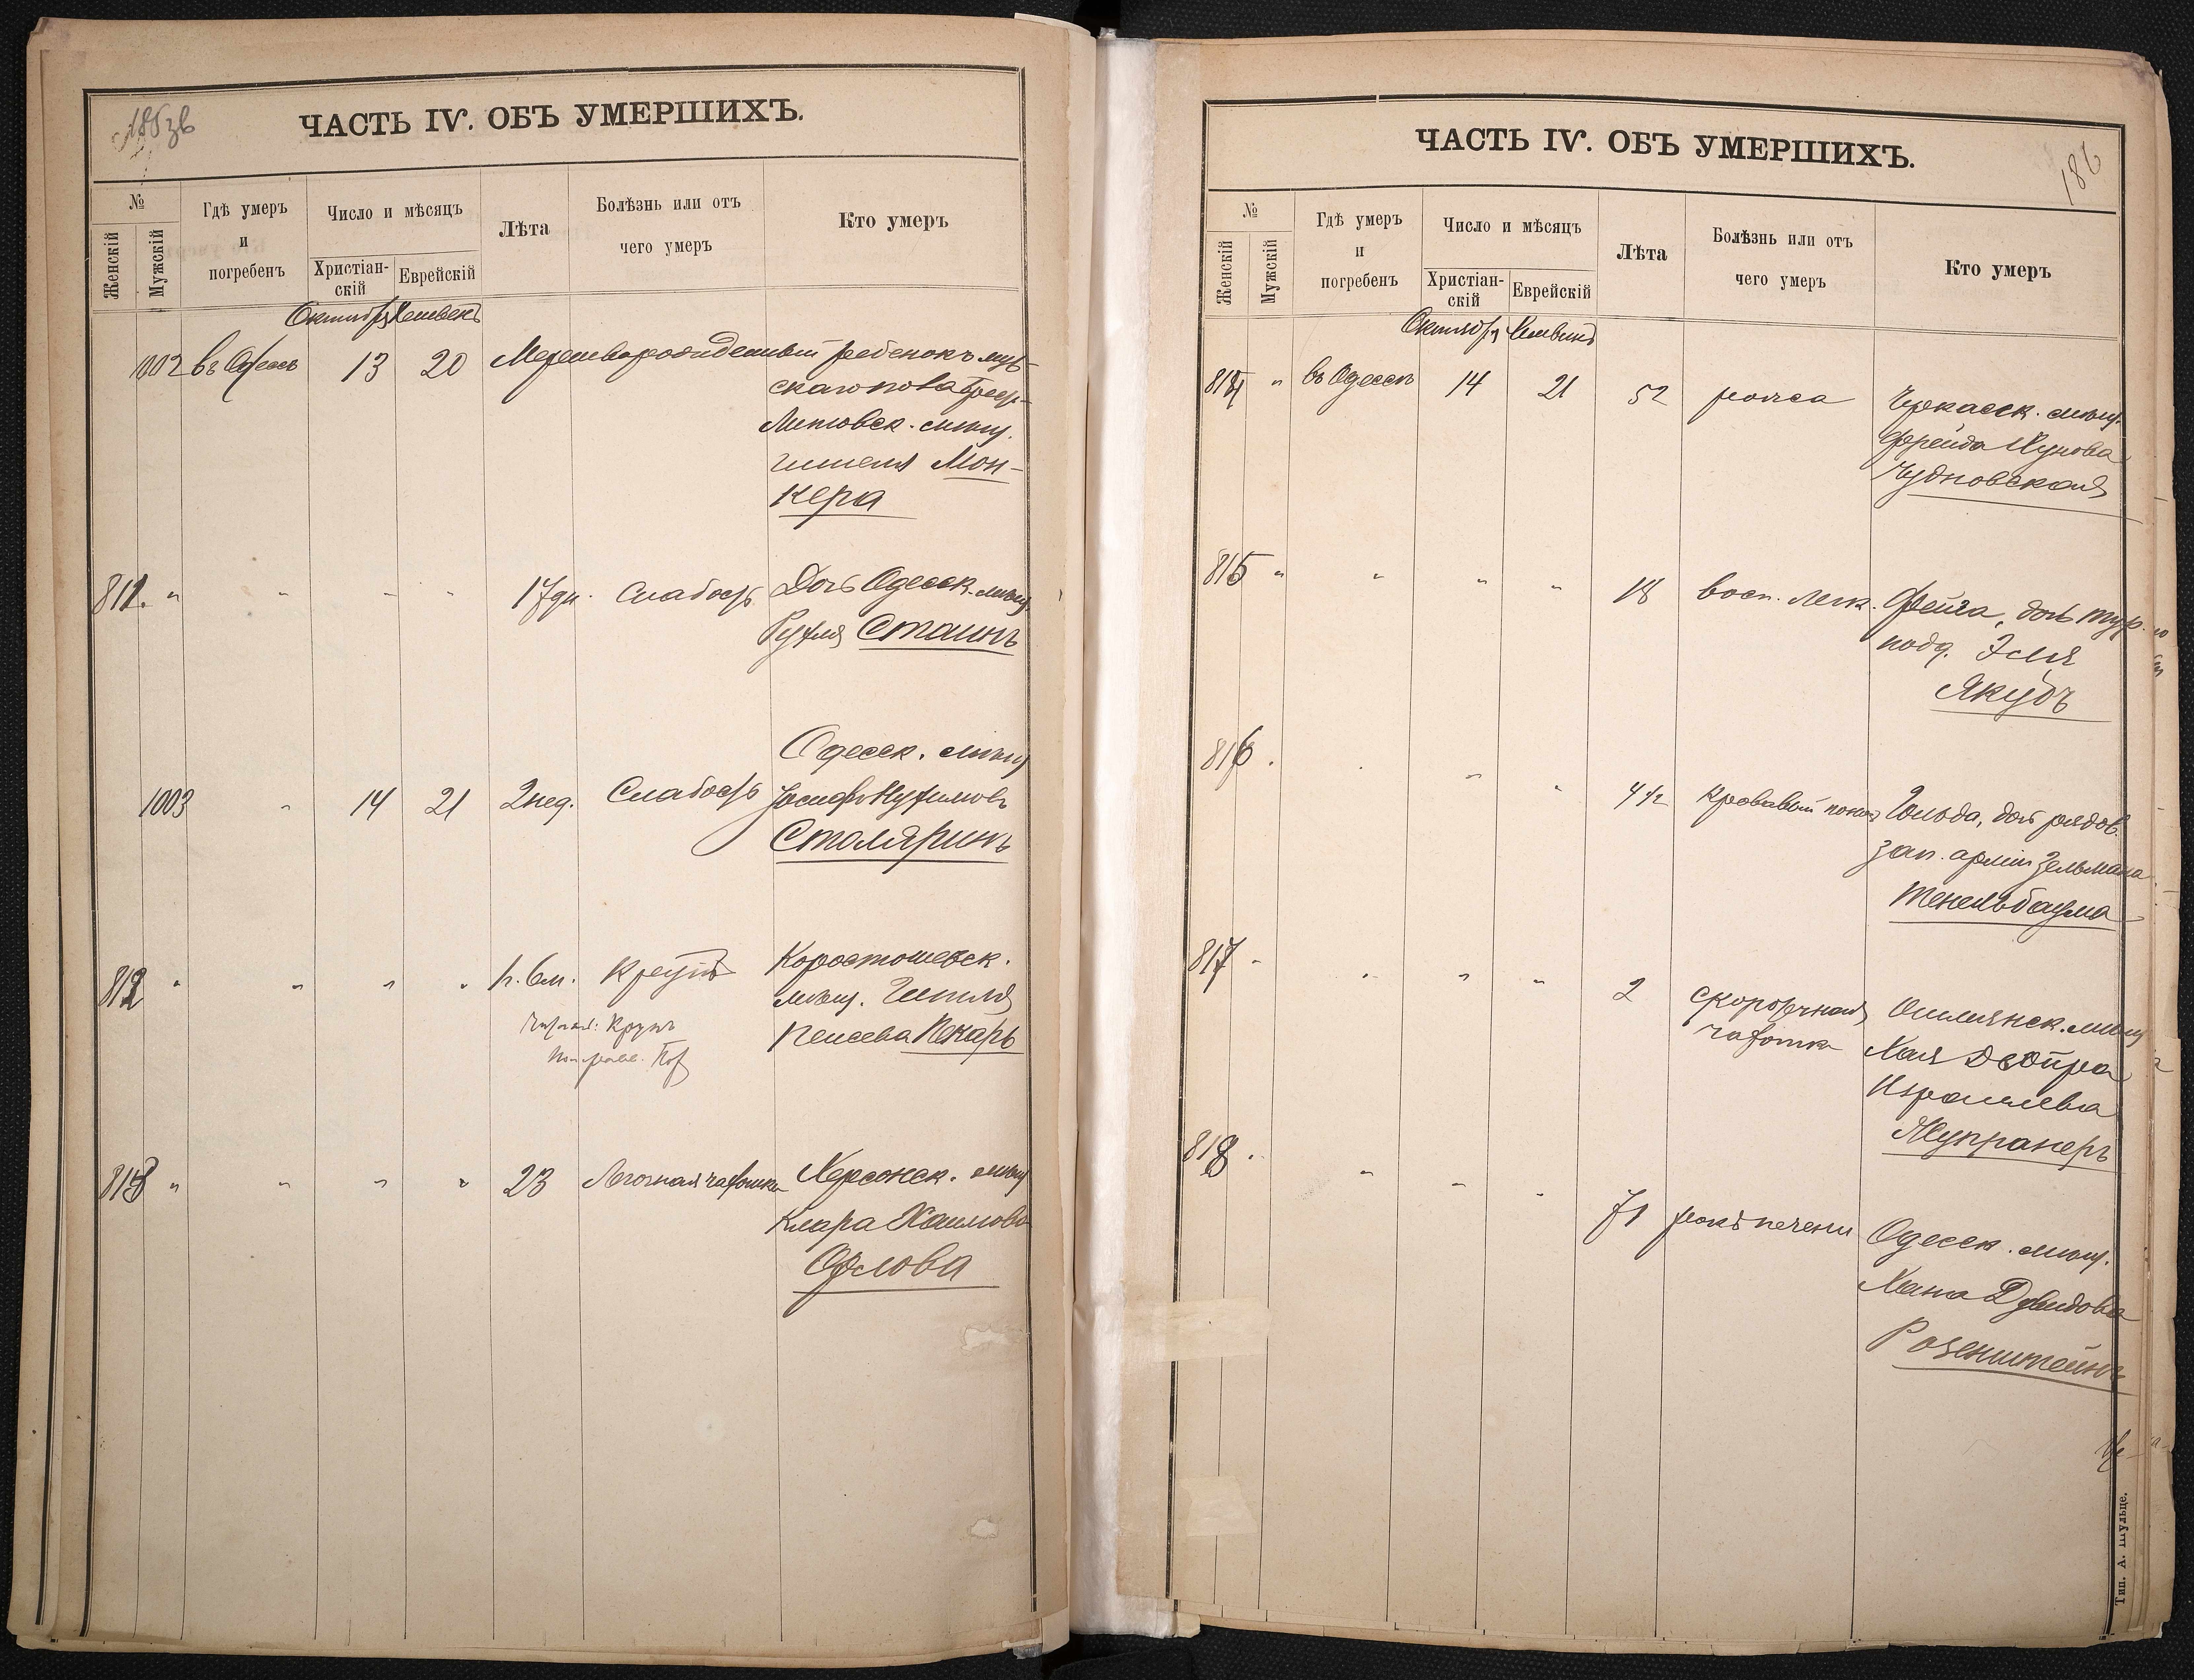 ЧАСТЬ IV. ОБЪ УМЕРШИХЪ.
№
Женскій
Мужскій
Гдѣ умеръ
и
погребенъ
Число и мѣсяцъ
Христіан-
скій
Еврейскій
Лѣта
Болѣзнь или отъ
чего умеръ
Кто умеръ
Октябрь
1002 въ Одессѣ 13 20 Мертворожденный ребенокъ муж-
скаго пола Брест-
Литовск. мѣщ.
Мон-
кера
811. " " " " 17 дн. Слабость Дочь Одесск. мѣщ.
Сташнъ
Одесск. мѣщ
1003 " 14 21 2 нед. Слабость
Столяринъ
812 " " " " Коростошевск.
мѣщ.
Пейсева Пекарь
813 " " " " 23 Легочная чахотка Херсонск. мѣщ
Клара Хаимова
Орлова
ЧАСТЬ IV. ОБЪ УМЕРШИХЪ.
186
№
Женскій
Мужскій
Гдѣ умеръ
и
погребенъ
Число и мѣсяцъ
Христіан-
скій
Еврейскій
Лѣта
Болѣзнь или отъ
чего умеръ
Кто умеръ
Октябрь
814 " въ Одессѣ 14 21 52 рожа Черкасск. мѣщ.
Фрейда
Чудновская
815 " " " " 18 восп. легк. Фейга, дочь тур.
подд. Эля
Якубъ
816 " " " 4 1/2 Кровавый понос Гольда, дочь рядов.
зап. арміи Зельмана
Тенельбаума
817 " " " " 2 скоротечная Ошмянск. мѣщ
чахотка Хая Двойра
Израилева
Жупранеръ
818 " " " " 71 ракъ печени Одесск. мѣщ.
Хана Давидова
Розенштейнъ
Тип. А. Шульце.